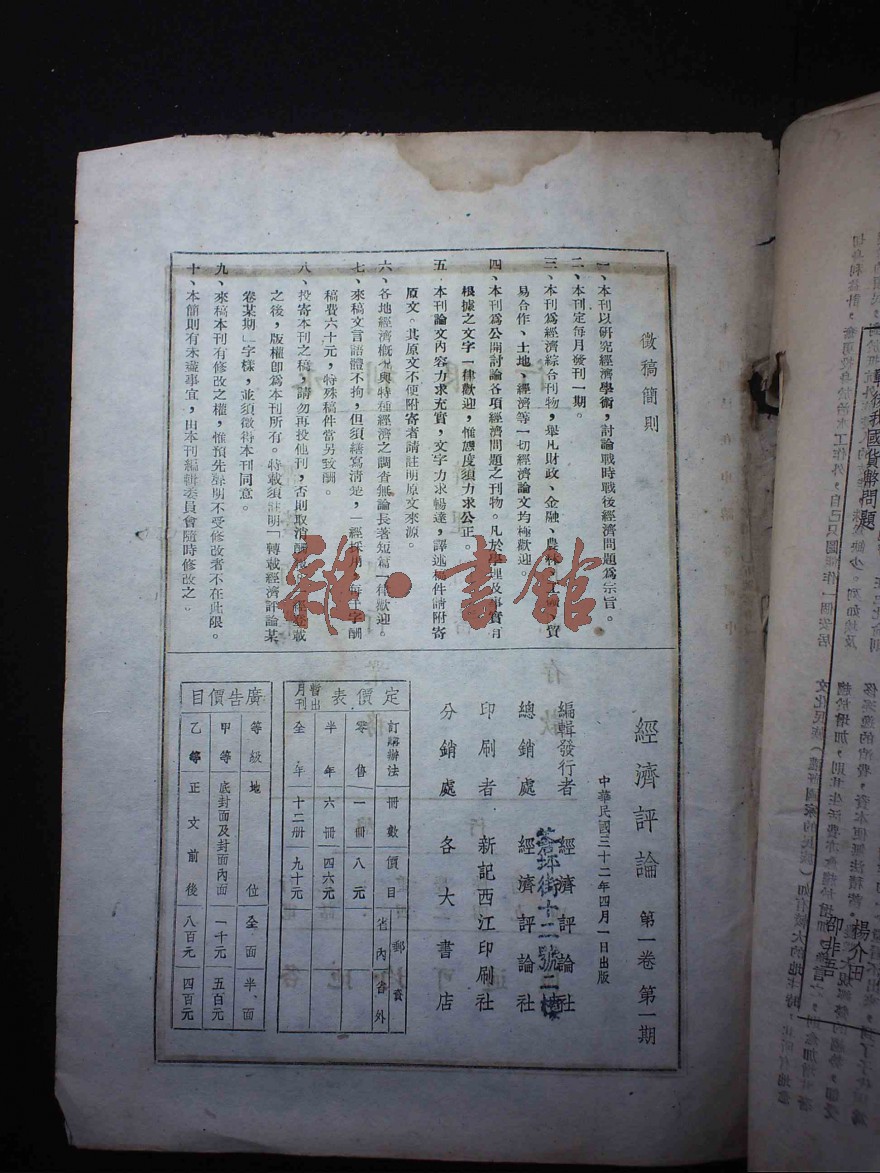 徵稿簡則
一、本刊以研究經濟學術，討論戰時戰後經濟問題爲宗旨。
二、本刊定每月發刊一期。
三、本刊爲經濟綜合刊物，舉凡財政、金融、農林、工礦、貿
易合作、土地、經濟等一切經濟論文均極歡迎。
四、本刊爲公開討論各項經濟問題之刊物。凡於學理及事實有
根據之文字一律歡迎，惟態度須力求公正。
五、本刊論文內容力求充實，文字力求暢達，譯述稿件請附寄
原文。其原文不便附寄者請註明原文來源。
六、各地經濟概況與特種經濟之調查無論長著短篇一律歡迎。
七、來稿文言語體不拘，但須繕寫清楚，一經採用，每千字酬
稿費六十元，特殊稿件當另致酬。
八、投寄本刊之稿，請勿再投他刊，否則取消酬 登載
之後，版權卽爲本刊所有。特載須註明「轉載經濟評論某
卷某期」字樣，並須徵得本刊同意。
九、來稿本刊有修改之權，惟預先聲明不受修改者不在此限。
十、本簡則有未盡事宜，由本刊編輯委員會隨時修改之。
雜·書館
經濟評論 第一卷 第一期
中華民國三十二年四月一日出版
編輯發行者 經濟評論社
蒼坪街十二號二樓
總銷處 經濟評論社
印刷者 新記西江印刷社
分銷處 各大書店
定價表 暫出月刊
訂購辦法 冊數 價目 郵費 省內 省外
零售 一冊 八元
半年 六冊 四六元
全年 十二冊 九十元
廣告價目
等級 地位 全面 半面
甲等 底封面及封面內面 一千元 五百元
乙等 正文前後 八百元 四百元
我國貨幣問題
楊介田
邵非吾